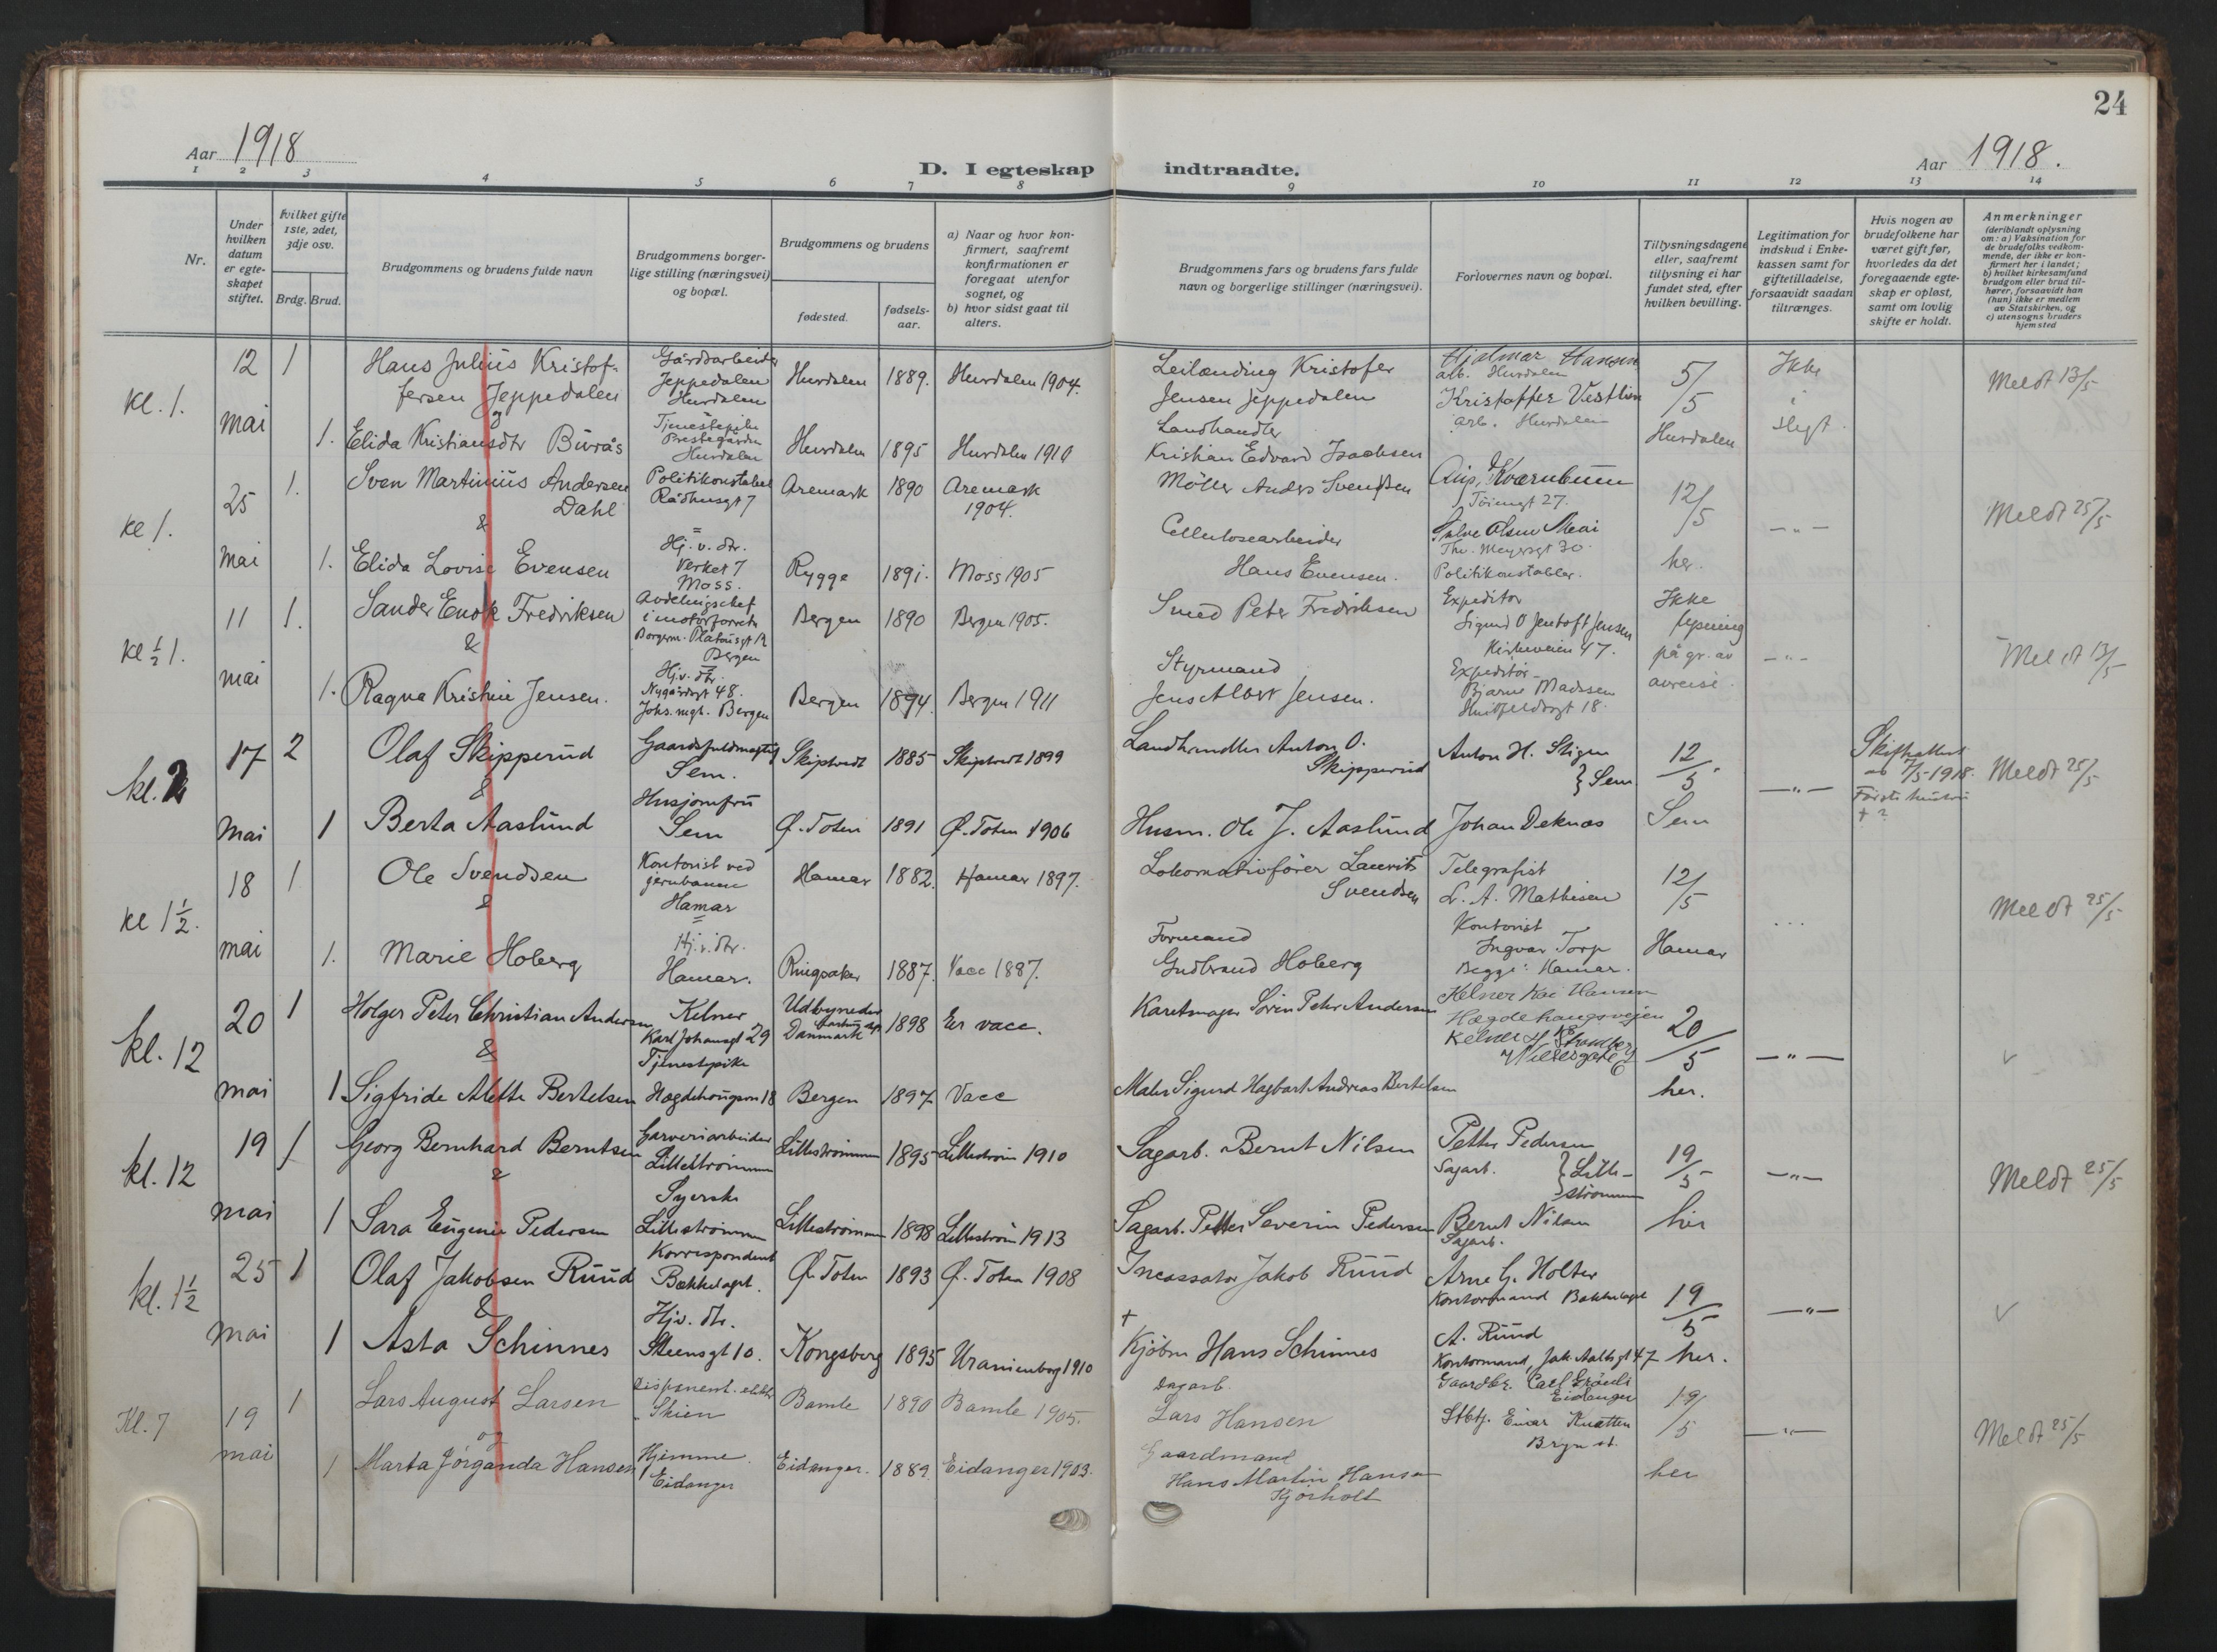 24
Aar 1918
D. I egteskap indtraadte.
Aar 1918.
1 2 3 4 5 6 7 8 9 10 11 12 13 14
Nr.
Under hvilken datum er egteskapet stiftet.
hvilket gifte 1ste, 2det, 3dje osv.
Brdg. Brud.
Brudgommens og brudens fulde navn
Brudgommens borgerlige stilling (næringsvei) og bopæl.
Brudgommens og brudens
fødested.
fødselsaar.
a) Naar og hvor konfirmert, saafremt konfirmationen er foregaat utenfor sognet, og
b) hvor sidst gaat til alters.
Brudgommens fars og brudens fars fulde navn og borgerlige stillinger (næringsvei).
Forlovernes navn og bopæl.
Tillysningsdagene eller, saafremt tillysning ei har fundet sted, efter hvilken bevilling.
Legitimation for indskud i Enkekassen samt for giftetilladelse, forsaavidt saadan tiltrænges.
Hvis nogen av brudefolkene har været gift før, hvorledes da det foregaaende egteskap er opløst, samt om lovlig skifte er holdt.
Anmerkninger
(deriblandt oplysning om: a) Vaksination for de brudefolks vedkommende, der ikke er konfirmert her i landet; b) hvilket kirkesamfund brudgom eller brud tilhører, forsaavidt han (hun) ikke er medlem av Statskirken, og c) utensogns bruders hjemsted
kl. 1. 12 mai
1 Hans Julius Kristoffersen Jeppedalen
Gårdsarbeider Jeppedalen Hurdalen
Hurdalen 1889. Hurdalen 1904.
Leilænding Kristofer Jensen Jeppedalen
Hjalmar Hansen arb. Hurdalen
5/5 Hurdalen
Ikke i slegt
Meldt 13/5
og
1. Elida Kristiansdtr Burås
Tjenestepike Prestegården Hurdalen
Hurdalen 1895 Hurdalen 1910
Landhandler Kristian Edvard Isachsen
Kristoffer Vestlien arb. Hurdalen
kl 1. 25 Mai
1. Sven Martinius Andersen Dahl
Politikonstabel Rådhusgt 7
Aremark 1890 Aremark 1904.
Møller Anders Svendsen
Aug. Kværnbum Tøiengt 27.
12/5 her.
Meldt 25/5
&
1. Elida Lovise Evensen
Hj. v. dtr. Verket 7 Moss.
Rygge 1891. Moss 1905
Cellulosearbeider Hans Evensen.
Olsen
Thv. Meyersgt 30. Politikonstabler.
kl ½ 1. 11 mai
1. Sander Enok Fredriksen
Avdelingschef i motorforretn
Bergen
Bergen 1890 Bergen 1905.
Smed Peter Fredriksen
Expeditør Sigurd O Jentoft Jensen Kirkeveien 47.
Ikke lysning på gr. av avreise.
Meldt 13/5
&
1. Ragna Kristine Jensen.
Hj. v. dtr. Nygårdsgt 48. Bergen
Bergen 1894. Bergen 1911
Styrmand Jens Albert Jensen.
Expeditør Bjarne Madssen Huitfeldtsgt 18.
kl. 2 17 Mai
2 Olaf Skipperud
Gaardsfuldmægtig Sem.
Skiptvedt 1885 Skiptvedt 1899
Landhandler Anton O. Skipperud
Anton H. Stigen
} Sem
12/5 Sem
Skifteattest av 7/5 1918.
Første hustru + ?
Meldt 25/5
&
1 Berta Aaslund
Husjomfru Sem
Ø. Toten 1891 Ø. Toten 1906
Husm. Ole J. Aaslund
Johan Deknæs
kl 1½. 18 mai
1 Ole Svendsen
Kontorist ved jernbanen Hamar
Hamar 1882. Hamar 1897.
Lokomotivfører Laurits Svendsen
Telegrafist L. A. Mathisen
12/5 Hamar
Meldt 25/5
&
1. Marie Hoberg
Hj. v. dtr. Hamar.
Ringsaker 1887. Vacc 1887.
Formand Gudbrand Hoberg
Kontorist Ingvar Torp Begge: Hamar.
kl. 12 20 mai
1 Holger Peter Christian Andersen
Kelner Karl Johansgt 29
Udbyneder Danmark 1898 Er vacc.
Karetmager Sören Peter Andersen
Kelner Kai Hansen Hægdehaugsvejen
20/5 her.
&
1 Sigfride Alette Bertelsen
Tjenestpike Hægdehaugsvn 18
Bergen 1897 Vacc
Maler Sigurd Hagbart Andreas Bertelsen
Kelner
kl. 12 19 mai
1 Georg Bernhard Berntsen
Garveriarbeider Lillestrømmen
Lillestrømmen 1895 Lillestrøm 1910
Sagarb. Bernt Nilsen
Petter Pedersen Sagarb.
} Lillestrømmen
19/5 her
Meldt 25/5
&
1 Sara Eugenie Pedersen
Syerske Lillestrømmen
Lillestrømmen 1898 Lillestrøm 1913
Sagarb. Petter Severin Pedersen
Bernt Nilsen Sagarb.
kl. 1½ 25 mai
1 Olaf Jakobsen Ruud
Korrespondent Bækkelaget.
Ø. Toten 1893 Ø. Toten 1908
Incassator Jakob Ruud
Arne G. Holter Kontormand Bækkelaget
19/5 her.
&
1 Asta Schinnes
Hjv. dtr. Steensgt 10.
Kongsberg 1895 Uranienborg 1910
+ Kjøbm Hans Schinnes
A. Ruud Kontormand, Jak. Aallsgt 47
Kl. 7 19 mai
1 Lars August Larsen
Disponent Skien
Bamle 1890 Bamle 1905.
Dagarb. Lars Hansen
Gaardbr. Carl Grønli Eidanger
19/5 her
Meldt 25/5
og
1 Marta Jørganda Hansen
Hjemme Eidanger
Eidanger. 1889. Eidanger 1903.
Gaardmand Hans Martin Hansen Kjørholt
Stbtj. Einar Knatten Bryn st.